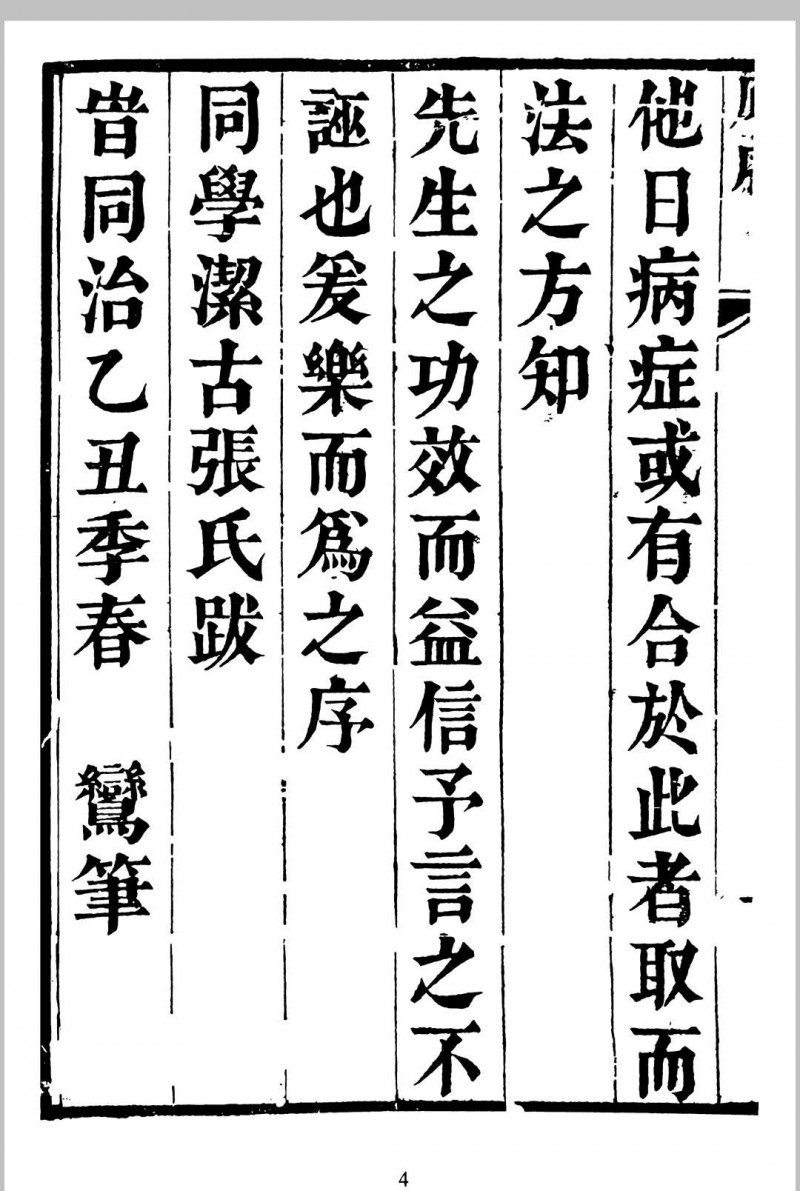 他日病症或有合於此者取而
法之方知
先生之功效而益信予言之不
誣也爰樂而爲之序
同學潔古張氏跋
旹同治乙丑季春　鸞筆
4